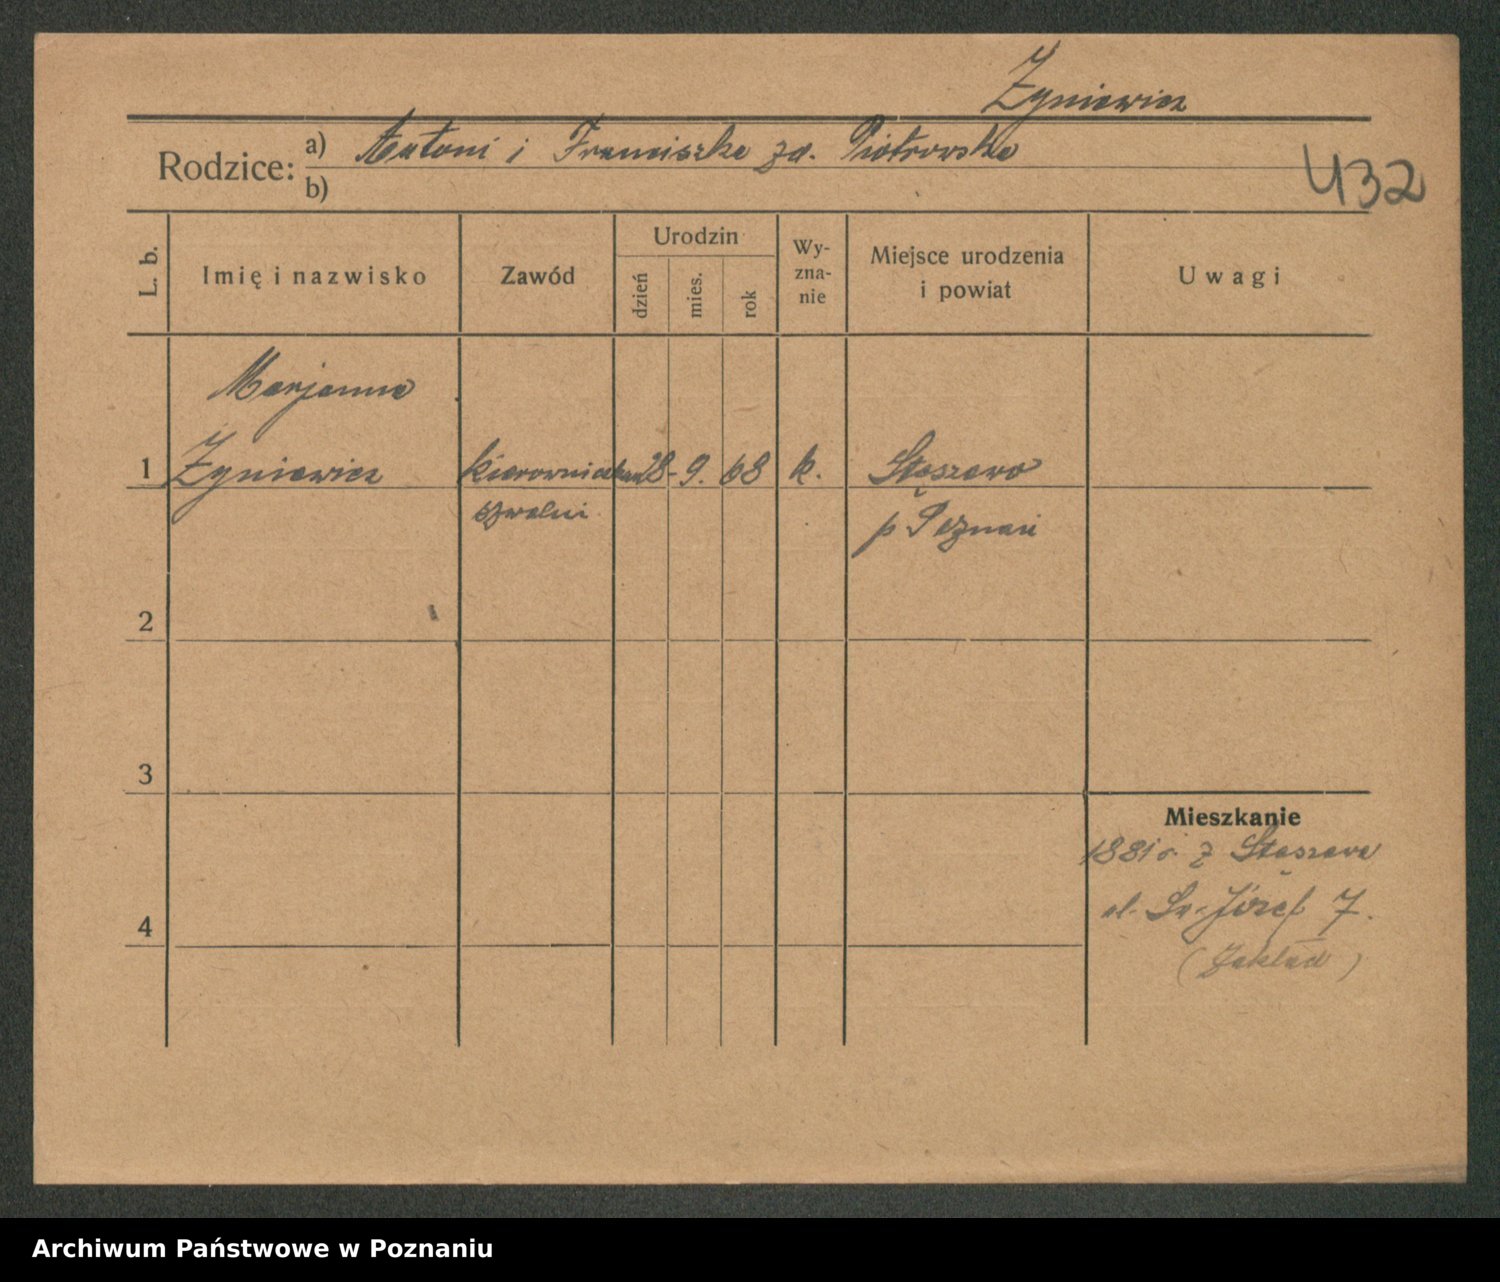 Żyniewicz
Rodzice: a) Antoni i Franciszka zd. Piotrowska
b)
432
L. b.
Imię i nazwisko
Zawód
Urodzin
dzień
mies.
rok
Wy-
zna-
nie
Miejsce urodzenia
i powiat
Uwagi
Marjanna
1 Żyniewicz kierowniczka 28. 9. 68 k. Stęszewo
szwalni p Poznań
2
3
Mieszkanie
1881 r. z Stęszewa
ul. Św. Józef 7.
4
(Zakład)
Archiwum Państwowe w Poznaniu